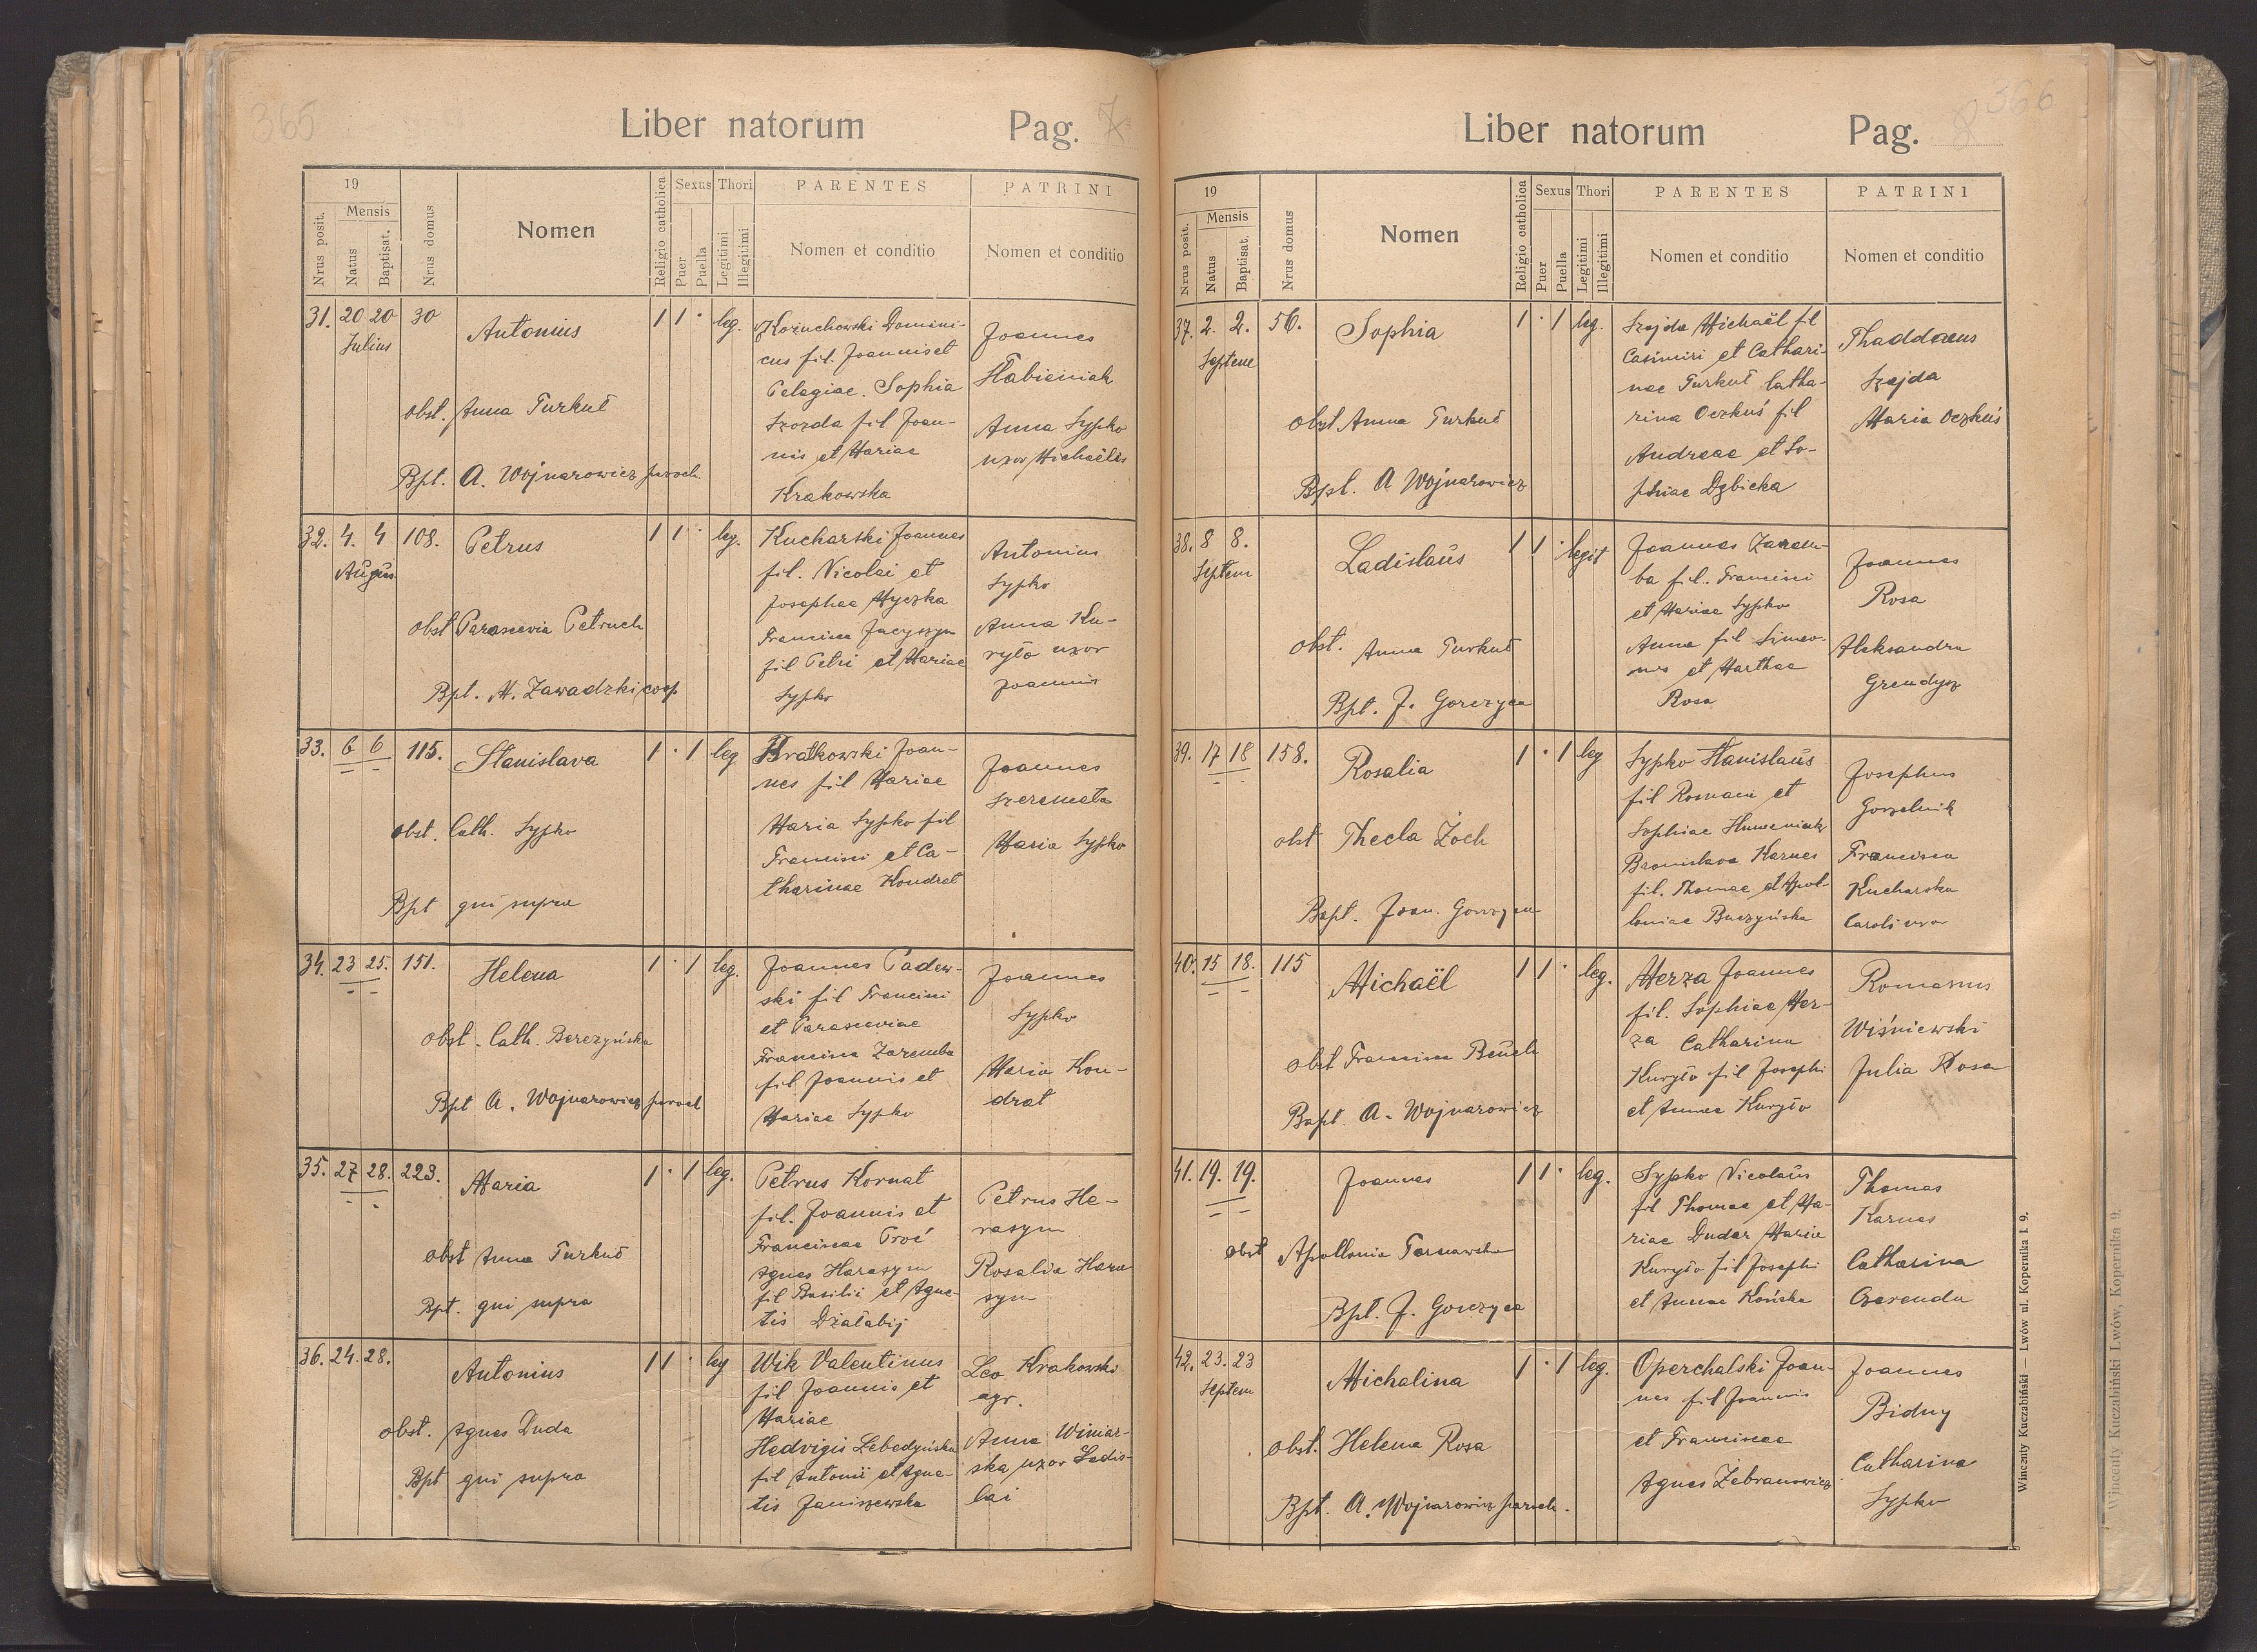 365
Liber natorum Pag. 7
19
Mensis
Nrus posit.
Natus
Baptisat.
Nrus domus
Nomen
Religio catholica
Sexus
Puer
Puella
Thori
Legitimi
Illegitimi
PARENTES
Nomen et conditio
PATRINI
Nomen et conditio
31. 20 20 30 Antonius 1 1 · leg.
Julius
obst. Anna Turkuł
Bpt. A. Wojnarowicz paroch.
Kożuchowski Domini-
cus fil. Joannis et
Pelagiae. Sophia
Szozda fil Joan-
nis et Mariae
Krakowska
Joannes
Fabieniak
Anna Sypko
uxor Michaëlis
32. 4. 4 108. Petrus 1 1 · leg.
Augus
obst Parascevia Petruch
Bpt. M. Zawadzki coop
Kucharski Joannes
fil. Nicolai et
Josephae Myczka
Francisca Jacyszyn
fil Petri et Mariae
Sypko
Antonius
Sypko
Anna Ku-
ryło uxor
Joannis
33. 6 6 115. Stanislava 1 · 1 leg
obst. Cath. Sypko
Bpt qui supra
Bratkowski Joan-
nes fil Mariae
Maria Sypko fil
Francisci et Ca-
tharinae Kondrat
Joannes
Szeremeta
Maria Sypko
34. 23 25. 151. Helena 1 · 1 leg.
obst. Cath. Berezyńska
Bpt A. Wojnarowicz paroch
Joannes Padew-
ski fil Francisci
et Parasceviae
Francisca Zaremba
fil Joannis et
Mariae Sypko
Joannes
Sypko
Maria Kon-
drat
35. 27 28. 223. Maria 1 · 1 leg.
obst Anna Turkuł
Bpt. qui supra
Petrus Kornat
fil. Joannis et
Franciscae Proć
Agnes Harasym
fil Basilii et Agne-
tis Działabij
Petrus He-
rasym
Rosalia Hara
sym
36. 24. 28. Antonius 1 1 · leg
obst. Agnes Duda
Bpt qui supra
Wik Valentinus
fil Joannis et
Mariae
Hedvigis Lebedyńska
fil Antonii et Agne-
tis Janiszewska
Leo Krakowski
agr.
Anna Winiar-
ska uxor Ladis-
lai
366
Liber natorum Pag. 8
19
Mensis
Nrus posit.
Natus
Baptisat.
Nrus domus
Nomen
Religio catholica
Sexus
Puer
Puella
Thori
Legitimi
Illegitimi
PARENTES
Nomen et conditio
PATRINI
Nomen et conditio
37. 2. 2. 56. Sophia 1 · 1 leg.
Septem
obst Anna Turkuł
Bpt. A Wojnarowicz
Szajda Michaël fil
Casimiri et Cathari-
nae Turkuł Catha-
rina Oczkuś fil
Andreae et So-
phiae Dębicka
Thaddaeus
Szajda
Maria Oczkuś
38. 8 8. Ladislaus 1 1 · legit
Septem
obst. Anna Turkuł
Bpt. J. Gorczyca
Joannes Zarem-
ba fil. Francisci
et Mariae Sypko
Anna fil Simeo-
nis et Marthae
Rosa
Joannes
Rosa
Aleksandra
Grendysz
39. 17 18 158. Rosalia 1 · 1 leg
obst Thecla Żoch
Bapt. Joan. Gorczyca
Sypko Stanislaus
fil Romani et
Sophiae Humeniak
Bronislava Karnes
fil. Thomae et Apol-
loniae Buczyńska
Josephus
Gorzelnik
Francisca
Kucharska
Caroli uxor
40. 15 18. 115 Michaël 1 1 · leg.
obst Francisca Beuch
Bapt. A. Wojnarowicz
Merza Joannes
fil. Sophiae Mer-
za Catharina
Kuryło fil Josephi
et Annae Kuryło
Romanus
Wiśniewski
Julia Rosa
41. 19. 19. Joannes 1 1 · leg.
obst Apollonia Tarnawska
Bpt. J. Gorczyca
Sypko Nicolaus
fil Thomae et Ma-
riae Dudar Maria
Kuryło fil Josephi
et Annae Końska
Thomas
Karnes
Catharina
Czerenda
42. 23. 23 Michalina 1 · 1 leg.
Septem
obst. Helena Rosa
Bpt. A. Wojnarowicz paroch.
Operchalski Joan-
nes fil Joannis
et Franciscae
Agnes Żebranowicz
Joannes
Bidny
Catharina
Sypko
Wincenty Kuczabiński — Lwów ul. Kopernika l. 9.
Wincenty Kuczabiński Lwów, Kopernika 9.